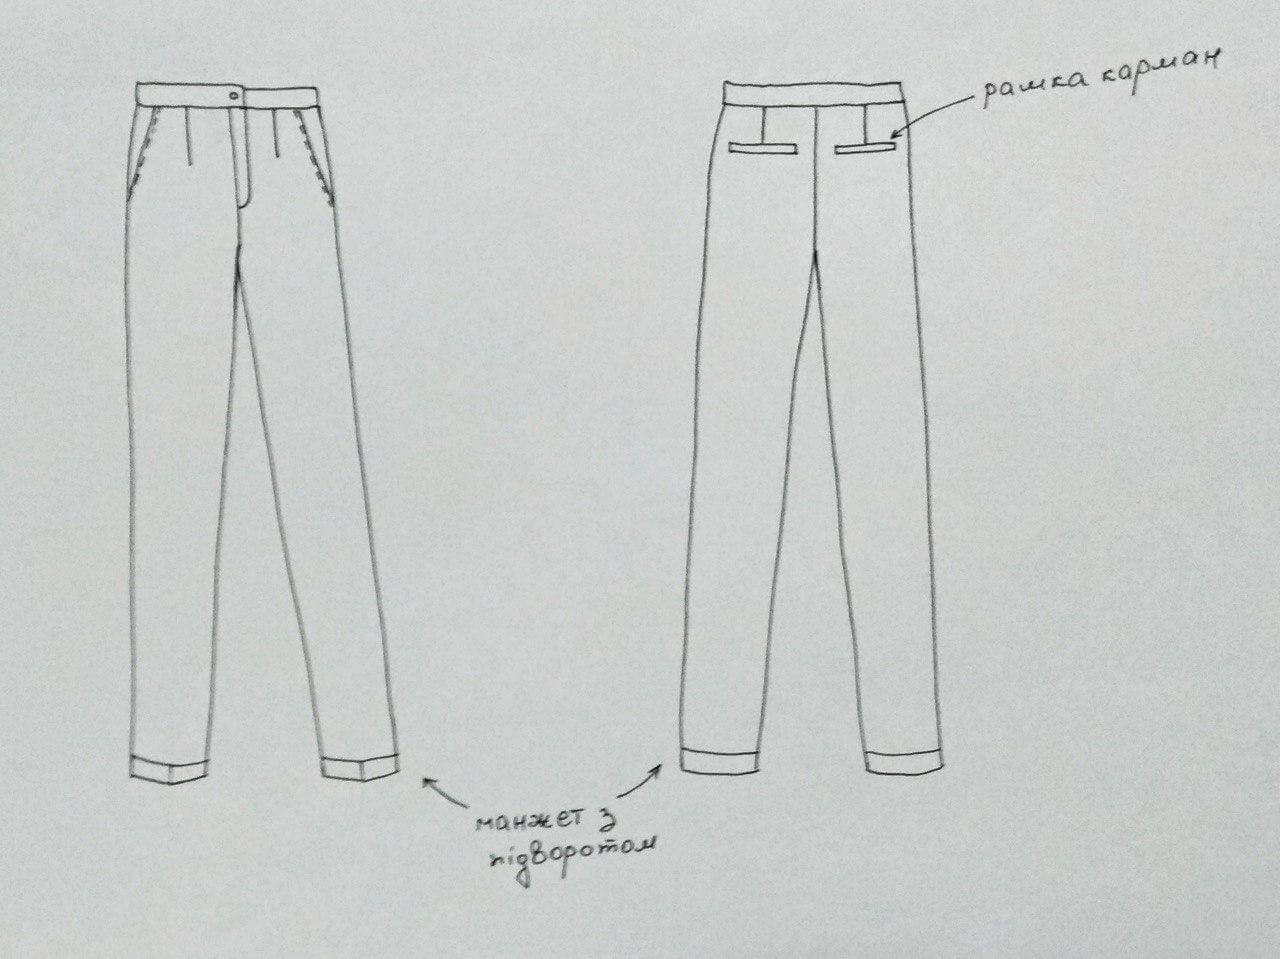 рамка карман
манжет з
підворотом